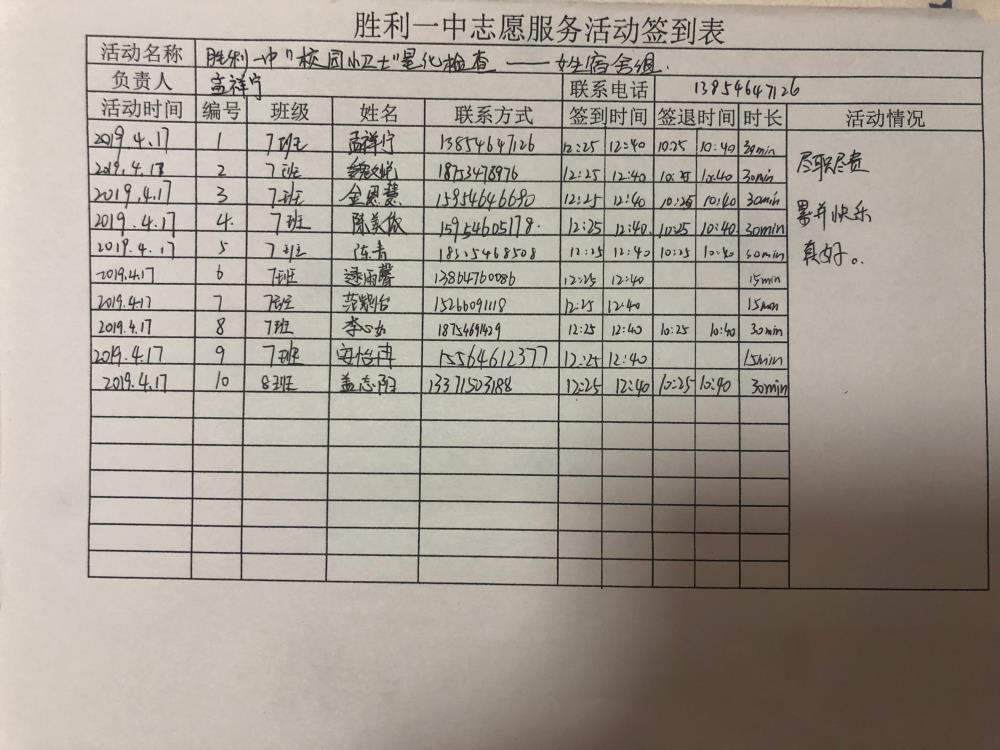 胜利一中志愿服务活动签到表
活动名称 胜利一中"校园小卫士"量化检查——女生宿舍组.
负责人 孟祥宁 联系电话 13854647126
活动时间 编号 班级 姓名 联系方式 签到时间 签退时间 时长 活动情况
2019.4.17 1 7班 孟祥宁 13854647126 12:25 12:40 10:25 10:40 30min
2019.4.17 2 7班 魏文悦 18753478976 12:25 12:40 10:25 10:40 30min
2019.4.17 3 7班 金恩慧 15954646690 12:25 12:40 10:25 10:40 30min
2019.4.17 4. 7班 陈美依 15954605178. 12:25 12:40 10:25 10:40 30min
2019.4.17 5 7班 陈青 18325468508 12:25 12:40 10:25 10:40 30min
2019.4.17 6 7班 逯雨馨 13864760086 12:25 12:40 15min
2019.4.17 7 7班 15266091118 12:25 12:40 15min
2019.4.17 8 7班 李心如 18754691429 12:25 12:40 10:25 10:40 30min
2019.4.17 9 7班 安怡冉 15564612377 12:25 12:40 15min
2019.4.17 10 8班 盖志阳 13371503188 12:25 12:40 10:25 10:40 30min
尽职尽责
累并快乐
真好。